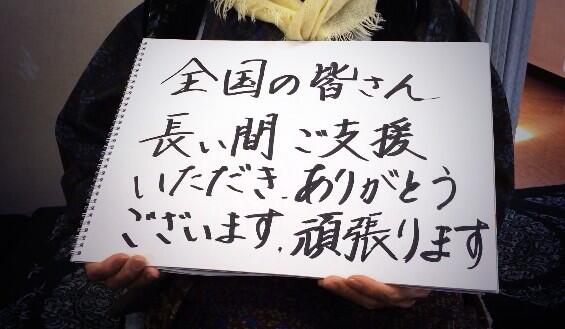 全国の皆さん
長い間ご支援
いただき、ありがとう
ございます、頑張ります